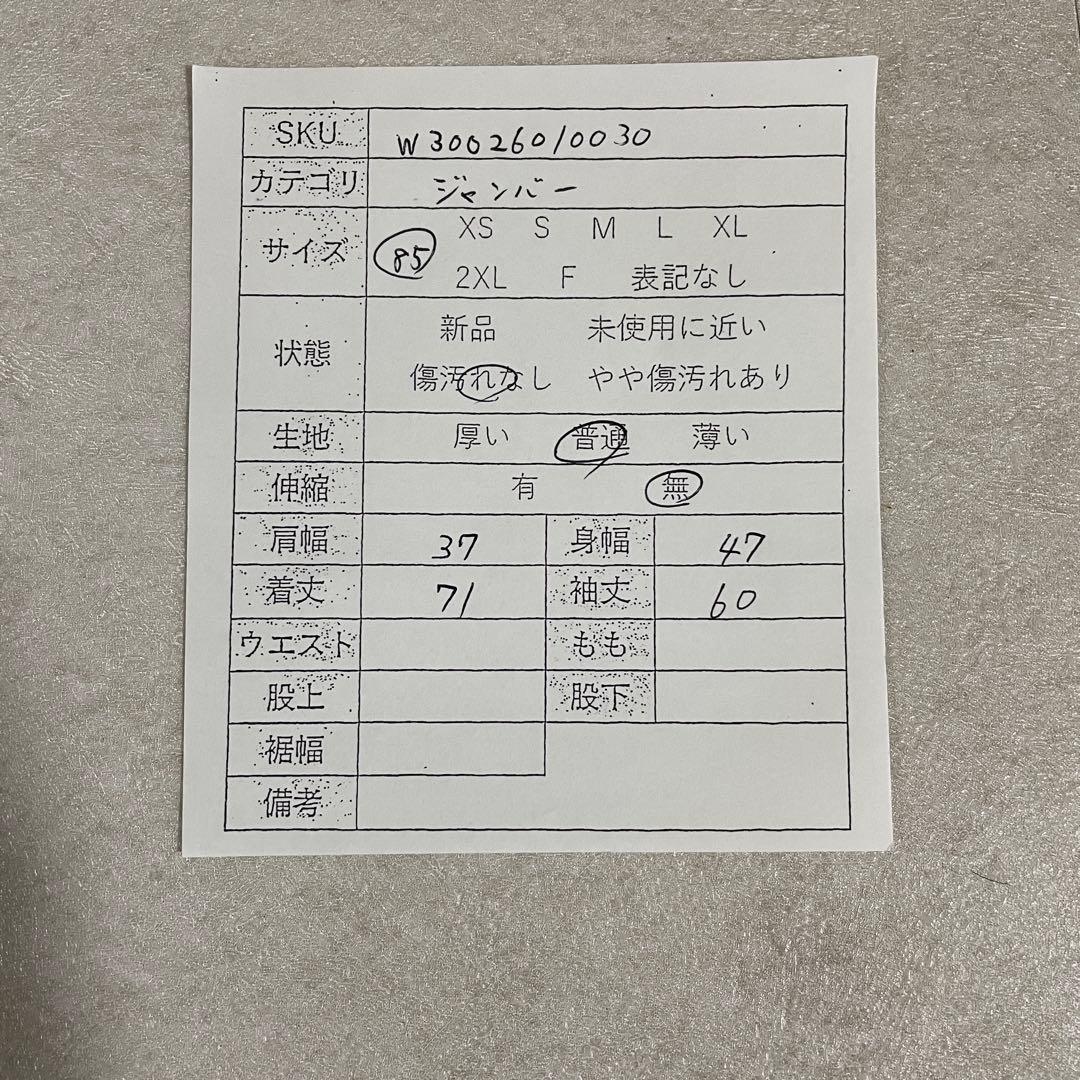 SKU W30026010030
カテゴリ ジャンバー
サイズ 85 XS S M L XL
2XL F 表記なし
状態 新品 未使用に近い
傷汚れなし やや傷汚れあり
生地 厚い 普通 薄い
伸縮 有 無
肩幅 37 身幅 47
着丈 71 袖丈 60
ウエスト もも
股上 股下
裾幅
備考